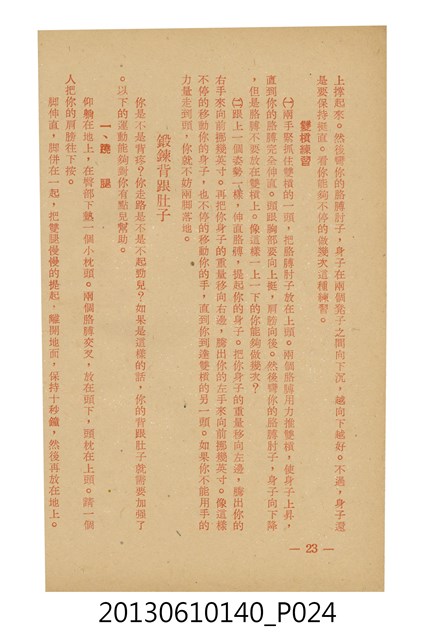 上撐起來。然後彎你的胳膊肘子，身子在兩個凳子之間向下沉，越向下越好。不過，身子還
是要保持挺直。看你能夠不停的做幾次這種練習。
雙槓練習
㈠兩手緊抓住雙槓的一頭，把胳膊肘子放在上頭。兩個胳膊用力推雙槓，使身子上昇，
直到你的胳膊完全伸直。頭跟胸部要向上挺，肩膀向後。然後彎你的胳膊肘子，身子向下降
，但是胳膊不要放在雙槓上。像這樣一上一下的你能夠做幾次？
㈡跟上一個姿勢一樣，伸直胳膊，提起你的身子。把你身子的重量移向左邊，騰出你的
右手來向前挪幾英寸。再把你身子的重量移向右邊，騰出你的左手來向前挪幾英寸。像這樣
不停的移動你的身子，也不停的移動你的手，直到你到達雙槓的另一頭。如果你不能用手的
力量走到頭，你就不妨兩脚落地。
鍛鍊背跟肚子
你是不是背疼？你走路是不是不起勁兒？如果是這樣的話，你的背跟肚子就需要加强了
。以下的運動能夠對你有點兒幫助。
一、蹺腿
仰躺在地上，在臀部下墊一個小枕頭。兩個胳膊交叉，放在頭下，頭枕在上頭。請一個
人把你的肩膀往下按。
脚伸直，脚併在一起，把雙腿慢慢的提起，離開地面，保持十秒鐘，然後再放在地上。
— 23 —
20130610140_P024